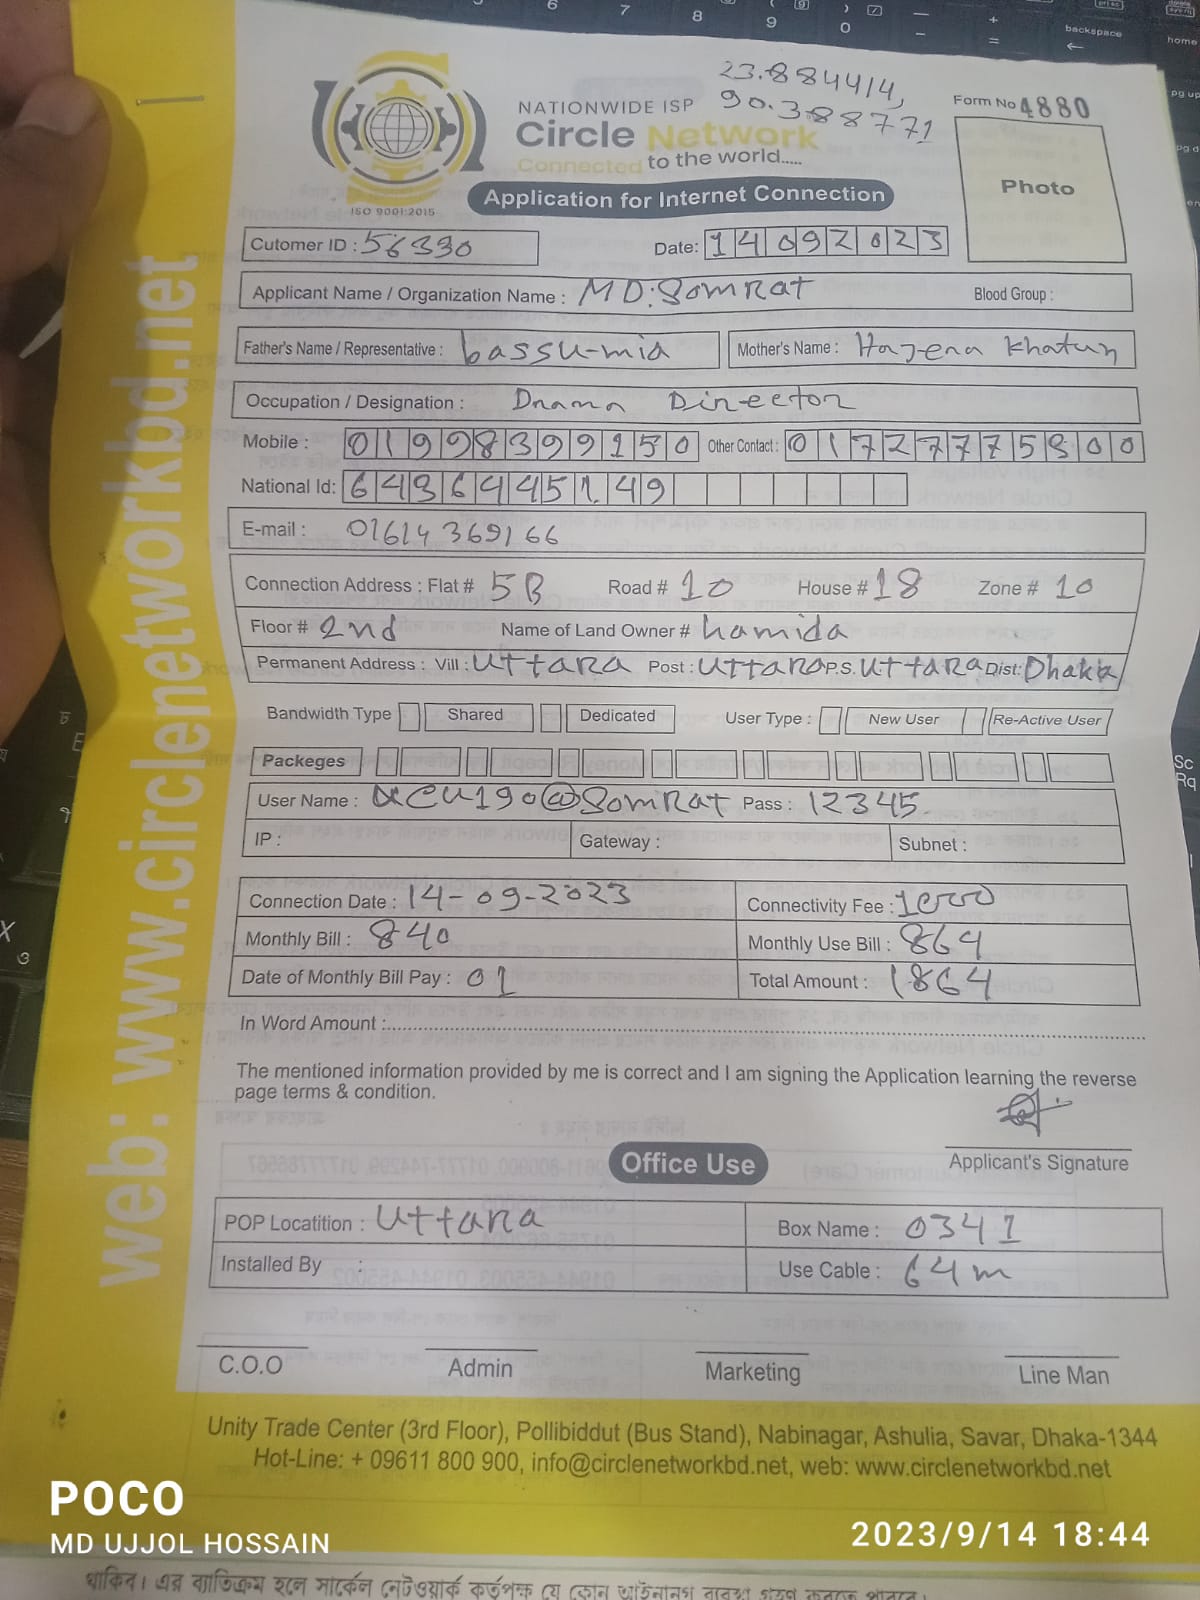 23.884414,
90.388771
NATIONWIDE ISP
Circle Network
Connected to the world.....
ISO 9001:2015
Form No 4880
Photo
Application for Internet Connection
Cutomer ID : 56330 Date: 14092023
Applicant Name / Organization Name : MD: SomRat Blood Group :
Father's Name / Representative : bassu-mia Mother's Name : Hajena Khatun
Occupation / Designation : Drama Director
Mobile : 01998399150 Other Contact : 01727775800
National Id: 6436445149
E-mail : 01614369166
Connection Address : Flat # 5B Road # 10 House # 18 Zone # 10
Floor # 2nd Name of Land Owner # hamida
Permanent Address : Vill : UttaRa Post : UttaRa P.S. UttaRa Dist: Dhaka
Bandwidth Type Shared Dedicated User Type : New User Re-Active User
Packeges
User Name : @SomRat Pass : 12345
IP : Gateway : Subnet :
Connection Date : 14-09-2023 Connectivity Fee : 1000
Monthly Bill : 840 Monthly Use Bill : 864
Date of Monthly Bill Pay : 01 Total Amount : 1864
In Word Amount :
The mentioned information provided by me is correct and I am signing the Application learning the reverse
page terms & condition.
Applicant's Signature
Office Use
POP Locatition : Uttara Box Name : 0341
Installed By : Use Cable : 64m
C.O.O Admin Marketing Line Man
Unity Trade Center (3rd Floor), Pollibiddut (Bus Stand), Nabinagar, Ashulia, Savar, Dhaka-1344
Hot-Line: + 09611 800 900, info@circlenetworkbd.net, web: www.circlenetworkbd.net
web: www.circlenetworkbd.net
POCO
MD UJJOL HOSSAIN
2023/9/14 18:44
থাকিব। এর ব্যতিক্রম হলে সার্কেল নেটওয়ার্ক কর্তৃপক্ষ যে কোন
backspace
home